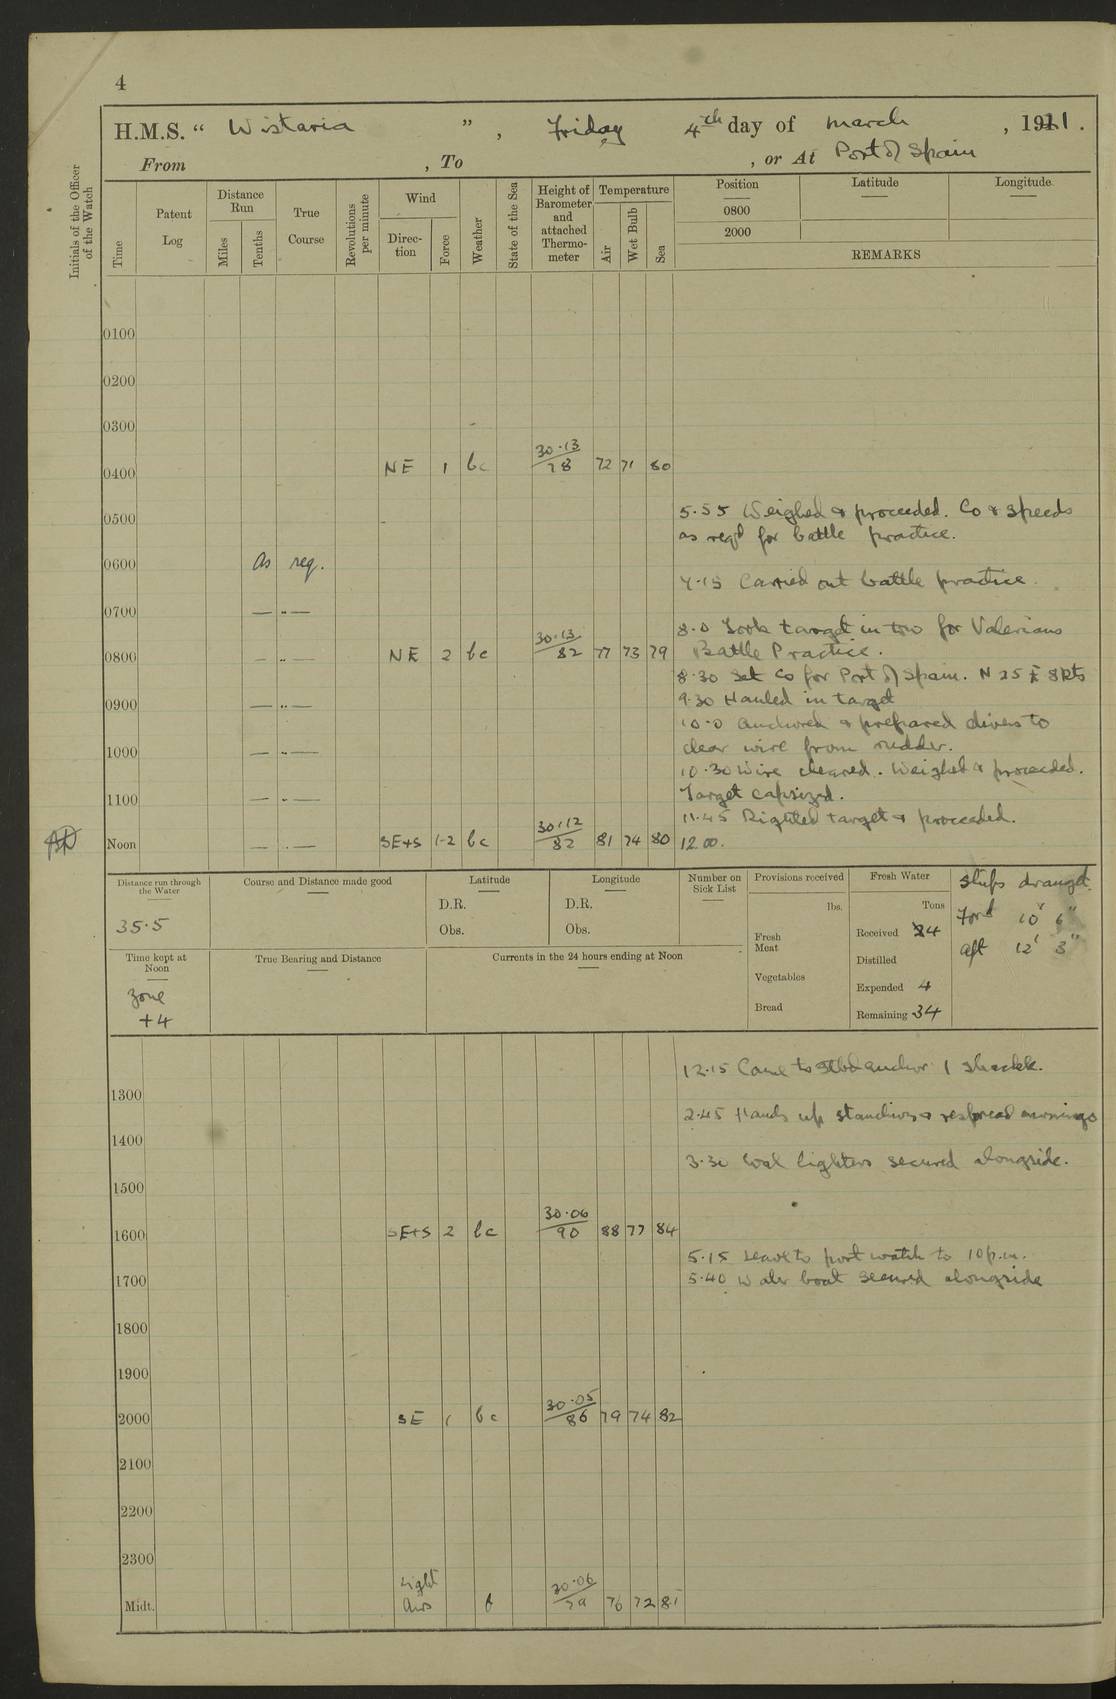 4
H.M.S. " Wistaria ", Friday 4th day of March, 1921.
From , To , or At Port of Spain
Initials of the Officer of the Watch
Time
Patent Log
Distance Run
Miles
Tenths
True Course
Revolutions per minute
Wind
Direction
Force
Weather
State of the Sea
Height of Barometer and attached Thermometer
Temperature
Air
Wet Bulb
Sea
Position
Latitude
Longitude
0800
2000
REMARKS
0100
0200
0300
0400 NE 1 bc 30.13/78 72 71 80
0500 5.55 Weighed & proceeded. Co & speeds
as reqd for battle practice.
0600 As req.
7.15 Carried out battle practice.
0700 — " —
8.0 Took target in tow for Valerians
0800 — " — NE 2 bc 30.13/82 77 73 79 Battle Practice.
8.30 Set Co for Port of Spain. N 25 E 8 kts
0900 — " — 9.30 Hauled in target
10.0 Anchored & prepared divers to
1000 — " — clear wire from rudder.
10.30 Wire cleared. Weighed & proceeded.
1100 — " — Target capsized.
11.45 Righted target & proceeded.
Noon — " — SE+S 1-2 bc 30.12/82 81 74 80 12.00.
Distance run through the Water
35.5
Course and Distance made good
Latitude
D.R.
Obs.
Longitude
D.R.
Obs.
Number on Sick List
Provisions received
lbs.
Fresh Meat
Vegetables
Bread
Fresh Water
Tons
Received 34
Distilled
Expended 4
Remaining 34
Ships draught
Ford 10' 6"
Aft 12' 3"
Time kept at Noon
Zone
+4
True Bearing and Distance
Currents in the 24 hours ending at Noon
12.15 Came to stbd anchor 1 shackle.
1300
2.45 Hands up stanchions & respread awnings
1400
3.30 Coal lighters secured alongside.
1500
1600 SE+S 2 bc 30.06/90 88 77 84
5.15 Leave to port watch to 10 p.m.
1700 5.40 Water boat secured alongside
1800
1900
2000 SE 1 bc 30.05/86 79 74 82
2100
2200
2300
Midt. Light Airs b 30.06/79 76 72 81